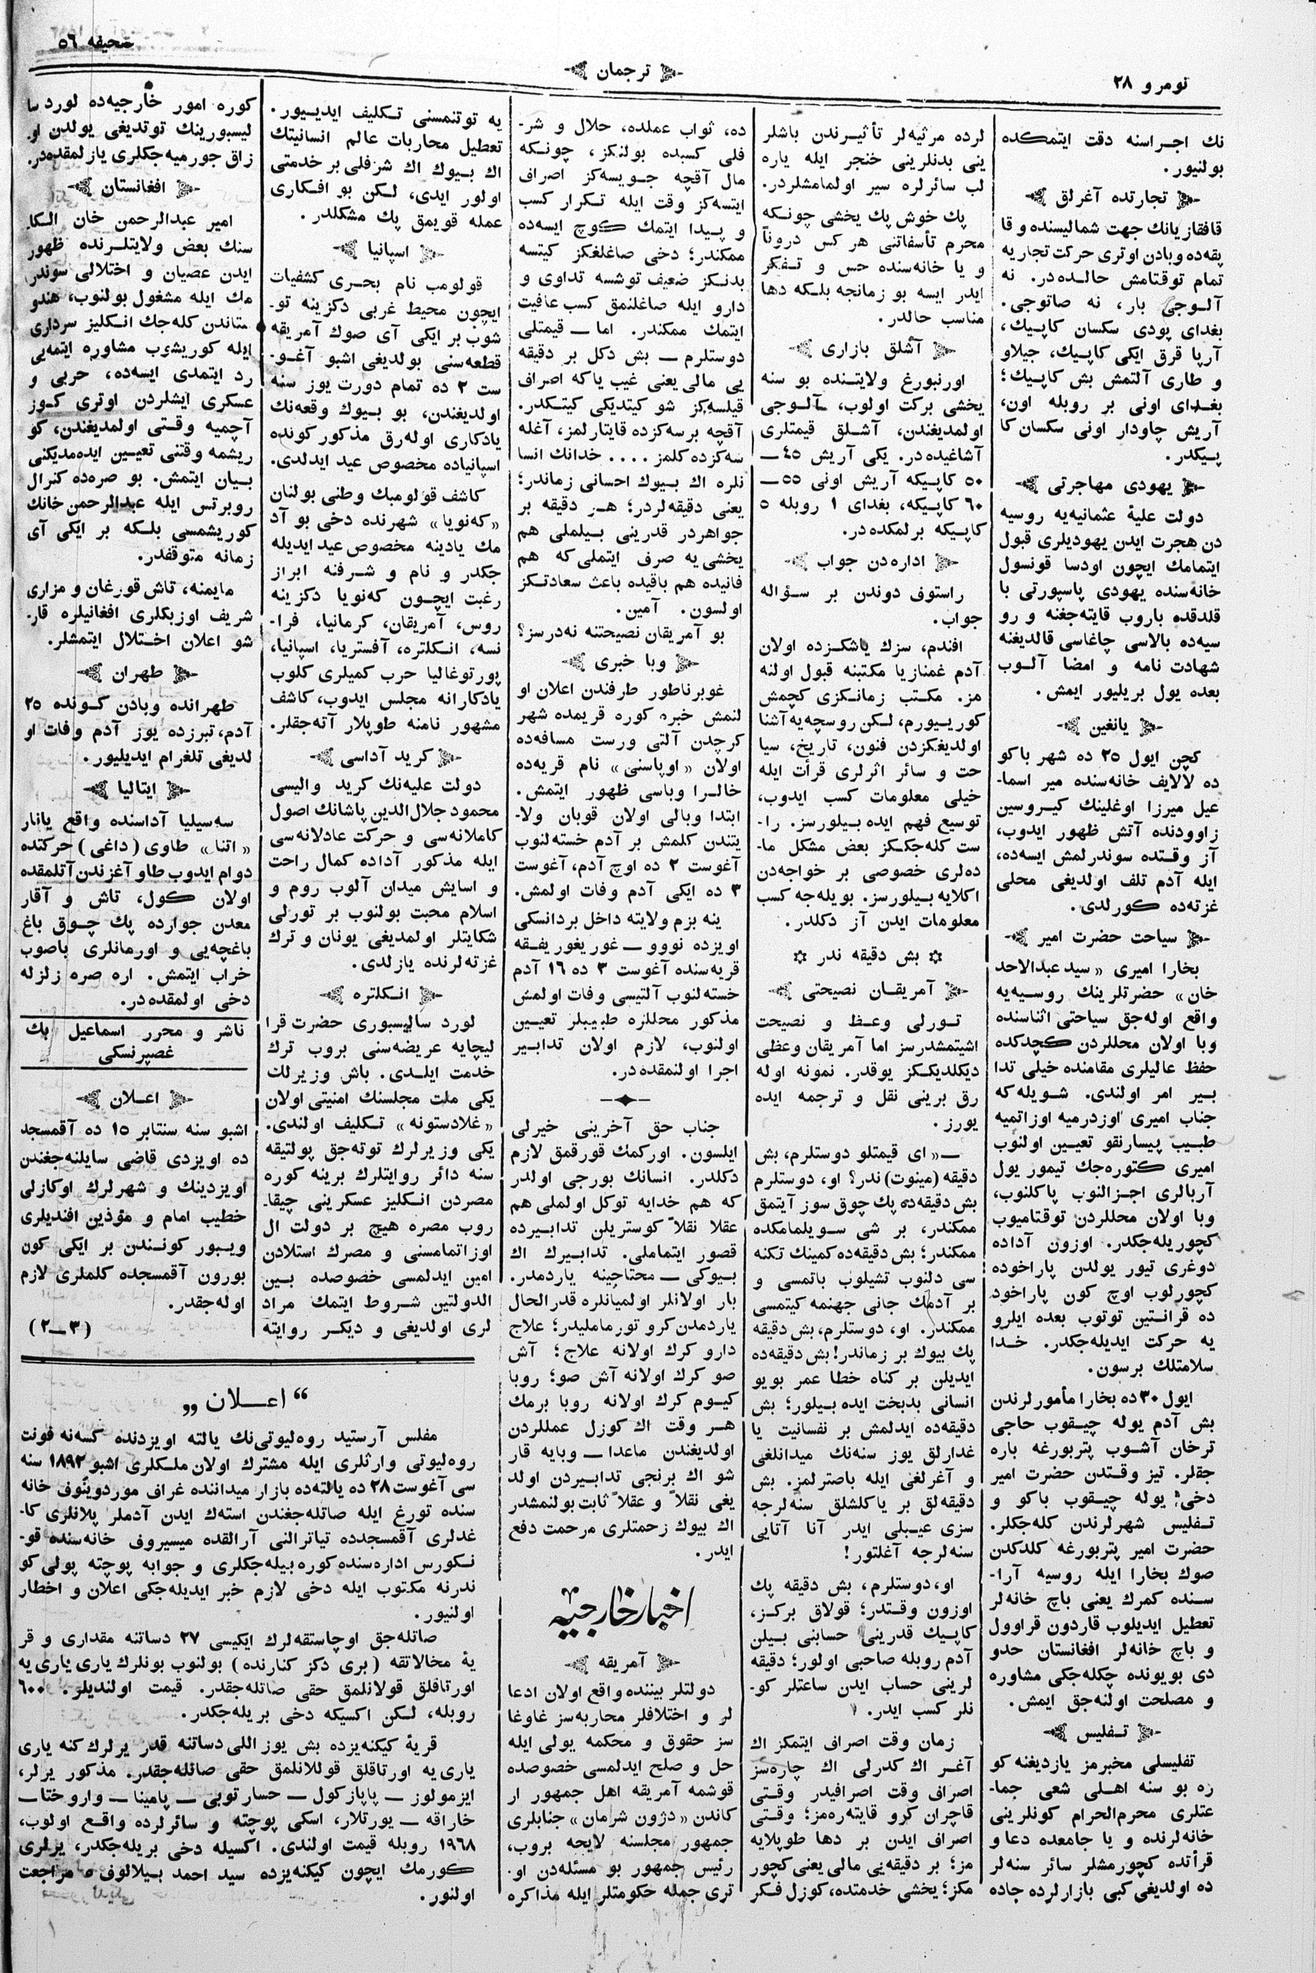 نومرو ٢٨
ترجمان
صحیفه ٥٦
نك اجراسنه دقت ایتمكده
بولنیور.
تجارتده آغرلق
قافقازیانك جهت شمالیسنده و قا
یقه‌ده وبادن اوتری حركت تجاریه
تمام توقتامش حالده‌در. نه
آلوجی بار، نه صاتوجی.
بغدای پودی سكسان كاپیك،
آرپا قرق ایكی كاپیك، جیلاو
و طاری آلتمش بش كاپیك؛
بغدای اونی بر روبله اون،
آریش چاودار اونی سكسان كا
پیكدر.
یهودی مهاجرتی
دولت علیهٔ عثمانیه‌یه روسیه
دن هجرت ایدن یهودیلری قبول
ایتمامك ایچون اودسا قونسول
خانه‌سنده یهودی پاسپورتی با
قلدقده باروب قایته‌جغنه و رو
سیه‌ده بالاسی چاغاسی قالدیغنه
شهادت نامه و امضا آلوب
بعده یول بریلیور ایمش.
یانغین
كچن ایول ٢٥ ده شهر باكو
ده لالایف خانه‌سنده میر اسما-
عیل میرزا اوغلینك كیروسین
زاوودنده آتش ظهور ایدوب،
آز وقتده سوندرلمش ایسه‌ده،
ایله آدم تلف اولدیغی محلی
غزته‌ده كورلدی.
سیاحت حضرت امیر
بخارا امیری «سید عبدالاحد
خان» حضرتلرینك روسیه‌یه
واقع اوله‌جق سیاحتی اثناسنده
وبا اولان محللردن كچدكده
حفظ عالیلری مقامنده خیلی تدا
بیر امر اولندی. شویله‌كه
جناب امیری اوزدرمیه اوزاتمیه
طبیب پیسارنقو تعیین اولنوب
امیری كتوره‌جك تیمور یول
آربالری اجزالنوب پاكلنوب،
وبا اولان محللردن توقتامیوب
كچوریله‌جكدر. اوزون آداده
دوغری تیور یولدن پاراخوده
كچورلوب اوچ كون پاراخود
ده قرانتین توتوب بعده ایلرو
یه حركت ایدیله‌جكدر. خدا
سلامتلك برسون.
ایول ٣٠ ده بخارا مأمورلرندن
بش آدم یوله چیقوب حاجی
ترخان آشوب پتربورغه باره
جقلر. تیز وقتدن حضرت امیر
دخی یوله چیقوب باكو و
تفلیس شهرلرندن كله‌جكلر.
حضرت امیر پتربورغه كلدكدن
صوك بخارا ایله روسیه آرا-
سنده كمرك یعنی باج خانه‌لر
تعطیل ایدیلوب قاردون قراوول
و باج خانه‌لر افغانستان حدو
دی بویونده چكله‌جكی مشاوره
و مصلحت اولنه‌جق ایمش.
تفلیس
تفلیسلی مخبرمز یازدیغنه كو
ره بو سنه اهلی شعی جما-
عتلری محرم‌الحرام كونلرینی
خانه‌لرنده و یا جامعده دعا و
قرأتده كچورمشلر سائر سنه‌لر
ده اولدیغی كبی بازارلرده جاده
لرده مرثیه‌لر تأثیرندن باشلر
ینی بدنلرینی خنجر ایله یاره
لب سائرلره سیر اولمامشلردر.
پك خوش پك یخشی چونكه
محرم تأسفاتنی هر كس دروناً
و یا خانه‌سنده حس و تفكر
ایدر ایسه بو زمانجه بلكه دها
مناسب حالدر.
آشلق بازاری
اورنبورغ ولایتنده بو سنه
یخشی بركت اولوب، آلوجی
اولمدیغندن، آشلق قیمتلری
آشاغیده‌در. یكی آریش ٤٥ ــ
٥٠ كاپیكه آریش اونی ٥٥ ــ
٦٠ كاپیكه، بغدای ١ روبله ٥
كاپیكه برلمكده‌در.
اداره‌دن جواب
راستوف دوندن بر سؤاله
جواب.
افندم، سزك یاشكزده اولان
آدم غمنازیا مكتبنه قبول اولنه
مز. مكتب زمانكزی كچمش
كورییورم، لكن روسچه‌یه آشنا
اولدیغكزدن فنون، تاریخ، سیا
حت و سائر اثرلری قرأت ایله
خیلی معلومات كسب ایدوب،
توسیع فهم ایده بیلورسز. را-
ست كله‌جكز بعض مشكل ما-
ده‌لری خصوصی بر خواجه‌دن
اكلایه بیلورسز. بویله‌جه كسب
معلومات ایدن آز دكلدر.
بش دقیقه ندر
آمریقان نصیحتی
تورلی وعظ و نصیحت
اشیتمشدرسز اما آمریقان وعظی
دیكلدیكز یوقدر. نمونه اوله
رق برینی نقل و ترجمه ایده
یورز.
ــ «ای قیمتلو دوستلرم، بش
دقیقه (مینوت) ندر؟ او، دوستلرم
بش دقیقه‌ده پك چوق سوز آیتمق
ممكندر، بر شی سویلمامكده
ممكندر؛ بش دقیقه‌ده كمینك تكنه
سی دلنوب تشیلوب باتمسی و
بر آدمك جانی جهنمه كیتمسی
ممكندر. او، دوستلرم، بش دقیقه
پك بیوك بر زماندر! بش دقیقه‌ده
ایدیلن بر كناه خطا عمر بویو
انسانی بدبخت ایده بیلور؛ بش
دقیقه‌ده ایدلمش بر نفسانیت یا
غدارلق یوز سنه‌نك میدانلغی
و آغرلغی ایله باصترلمز. بش
دقیقه‌لق بر یاكلشلق سنه‌لرجه
سزی عیبلی ایدر آنا آتایی
سنه‌لرجه آغلتور!
او، دوستلرم، بش دقیقه پك
اوزون وقتدر؛ قولاق بركز،
كاپیك قدرینی حسابنی بیلن
آدم روبله صاحبی اولور؛ دقیقه
لرینی حساب ایدن ساعتلر كو-
نلر كسب ایدر.
زمان وقت اصراف ایتمكز اك
آغر اك كدرلی اك چاره‌سز
اصرافی وقت اصرافیدر وقتی
قاچران كرو قایته‌ره‌مز؛ وقتی
اصراف ایدن بر دها طوپلایه
مز؛ بر دقیقه‌یی مالی یعنی كچور
مكز؛ یخشی خدمتده، كوزل فكر
ده، ثواب عملده، حلال و شر-
فلی كسبده بولنكز، چونكه
مال آقچه جویسه‌كز اصراف
ایتسه‌كز وقت ایله تكرار كسب
و پیدا ایتمك كوچ ایسه‌ده
ممكندر؛ دخی صاغلغكز كیتسه
بدنكز ضعیف توشسه تداوی و
دارو ایله صاغلنمق كسب عافیت
ایتمك ممكندر. اما ــ قیمتلی
دوستلرم ــ بش دكل بر دقیقه
یی مالی یعنی غیب یاكه اصراف
قیلسه‌كز شو كیتدیكی كیتكدر.
آقچه برسه‌كزده قایتارلمز، آغله
سه‌كزده كلمز .... خدانك انسا
نلره اك بیوك احسانی زماندر؛
یعنی دقیقه‌لردر؛ هر دقیقه بر
جواهردر قدرینی بیلملی هم
یخشی‌یه صرف ایتملی‌كه هم
فانیده هم باقیده باعث سعادتكز
اولسون. آمین.
بو آمریقان نصیحتنه نه‌درسز؟
وبا خبری
غوبرناطور طرفندن اعلان او
لنمش خبره كوره قریمده شهر
كرچدن آلتی ورست مسافه‌ده
اولان «اوپاسنی» نام قریه‌ده
خالرا وباسی ظهور ایتمش.
ابتدا وبالی اولان قوبان ولا-
یتندن كلمش بر آدم خسته‌لنوب
آغوست ٢ ده اوچ آدم، آغوست
٣ ده ایكی آدم وفات اولمش.
ینه بزم ولایته داخل بردانسكی
اویزده نووو ــ غوریغور یفقه
قریه‌سنده آغوست ٣ ده ١٦ آدم
خسته‌لنوب آلتیسی وفات اولمش
مذكور محللره طبیبلر تعیین
اولنوب، لازم اولان تدابیر
اجرا اولنمقده‌در.
جناب حق آخرینی خیرلی
ایلسون. اوركمك قورقمق لازم
دكلدر. انسانك بورجی اولدر
كه هم خدایه توكل اولملی هم
عقلا نقلاً كوستریلن تدابیرده
قصور ایتماملی. تدابیرك اك
بیوكی ــ محتاجینه یاردمدر.
بار اولانلر اولمیانلره قدرالحال
یاردمدن كرو تورماملیدر؛ علاج
دارو كرك اولانه علاج؛ آش
صو كرك اولانه آش صو؛ روبا
كیوم كرك اولانه روبا برمك
هر وقت اك كوزل عمللردن
اولدیغندن ماعدا ــ وبایه قار
شو اك برنجی تدابیردن اولد
یغی نقلاً و عقلاً ثابت بولنمشدر
اك بیوك زحمتلری مرحمت دفع
ایدر.
اخبار خارجیه
آمریقه
دولتلر بیننده واقع اولان ادعا
لر و اختلافلر محاربه‌سز غاوغا
سز حقوق و محكمه یولی ایله
حل و صلح ایدلمسی خصوصده
قوشمه آمریقه اهل جمهور ار
كاندن «دژون شرمان» جنابلری
جمهور مجلسنه لایحه بروب،
رئیس جمهور بو مسئله‌دن او.
تری جمله حكومتلر ایله مذاكره
یه توتنمسنی تكلیف ایدییور.
تعطیل محاربات عالم انسانیتك
اك بیوك اك شرفلی بر خدمتی
اولور ایدی، لكن بو افكاری
عمله قویمق پك مشكلدر.
اسپانیا
قولومب نام بحری كشفیات
ایچون محیط غربی دكزینه تو-
شوب بر ایكی آی صوك آمریقه
قطعه‌سنی بولدیغی اشبو آغو-
ست ٢ ده تمام دورت یوز سنه
اولدیغندن، بو بیوك وقعه‌نك
یادكاری اوله‌رق مذكور كونده
اسپانیاده مخصوص عید ایدلدی.
كاشف قولومبك وطنی بولنان
«كه‌نویا» شهرنده دخی بو آد
مك یادینه مخصوص عید ایدیله
جكدر و نام و شرفنه ابراز
رغبت ایچون كه‌نویا دكزینه
روس، آمریقان، كرمانیا، فرا-
نسه، انكلتره، آفستریا، اسپانیا،
پورتوغالیا حرب كمیلری كلوب
یادكارانه مجلس ایدوب، كاشف
مشهور نامنه طوپلار آته‌جقلر.
كرید آداسی
دولت علیه‌نك كرید والیسی
محمود جلال‌الدین پاشانك اصول
كاملانه‌سی و حركت عادلانه‌سی
ایله مذكور آداده كمال راحت
و اسایش میدان آلوب روم و
اسلام محبت بولنوب بر تورلی
شكایتلر اولمدیغی یونان و ترك
غزته‌لرنده یازلدی.
انكلتره
لورد سالیسبوری حضرت قرا
لیچایه عریضه‌سنی بروب ترك
خدمت ایلدی. باش وزیرلك
یكی ملت مجلسنك امنیتی اولان
«غلادستونه» تكلیف اولندی.
یكی وزیرلرك توته‌جق پولتیقه
سنه دائر روایتلرك برینه كوره
مصردن انكلیز عسكرینی چیقا-
روب مصره هیچ بر دولت ال
اوزاتمامسنی و مصرك استلادن
امین ایدلمسی خصوصده بین
الدولتین شروط ایتمك مراد
لری اولدیغی و دیكر روایته
كوره امور خارجیه‌ده لورد سا
لیسبورینك توتدیغی یولدن او-
زاق جورمیه‌جكلری یازلمقده‌در.
افغانستان
امیر عبدالرحمن خان الكا
سنك بعض ولایتلرنده ظهور
ایدن عصیان و اختلالی سوندر
مك ایله مشغول بولنوب، هندو
ستاندن كله‌جك انكلیز سرداری
ایله كوریشوب مشاوره ایتمه‌یی
رد ایتمدی ایسه‌ده، حربی و
عسكری ایشلردن اوتری كوز
آچمیه وقتی اولمدیغندن، كو
ریشمه وقتنی تعیین ایده‌مدیكنی
بیان ایتمش. بو صره‌ده كنرال
روبرتس ایله عبدالرحمن خانك
كوریشمسی بلكه بر ایكی آی
زمانه متوقفدر.
مایمنه، تاش قورغان و مزاری
شریف اوزبكلری افغانیلره قار-
شو اعلان اختلال ایتمشلر.
طهران
طهرانده وبادن كونده ٢٥
آدم، تبرزده یوز آدم وفات او
لدیغی تلغرام ایدیلیور.
ایتالیا
سه‌سیلیا آداسنده واقع یانار
«اتنا» طاوی (داغی) حركتده
دوام ایدوب طاو آغزندن آتلمقده
اولان كول، تاش و آقار
معدن جوارده پك چوق باغ
باغچه‌یی و اورمانلری باصوب
خراب ایتمش. اره صره زلزله
دخی اولمقده‌در.
ناشر و محرر اسماعیل بك
غصپرنسكی
اعلان
اشبو سنه سنتابر ١٥ ده آقمسجد
ده اویزدی قاضی سایلنه‌جغندن
اویزدینك و شهرلرك اوكازلی
خطیب امام و مؤذین افندیلری
ویبور كونندن بر ایكی كون
بورون آقمسجده كلملری لازم
اوله‌جقدر.
(٣ــ٢)
„ اعلان “
مفلس آرستید روه‌لیوتی‌نك یالته اویزدنده كسه‌نه فونت
روه‌لیوتی وارثلری ایله مشترك اولان ملكلری اشبو ١٨٩٢ سنه
سی آغوست ٢٨ ده یالته‌ده بازار میداننده غراف موردوینوف خانه
سنده تورغ ایله صاتله‌جغندن استه‌ك ایدن آدملر پلانلری كا-
غدلری آقمسجدده تیاترالنی آرالقده میسیروف خانه‌سنده قو-
نكورس اداره‌سنده كوره بیله‌جكلری و جوابه پوچته پولی كو
ندرنه مكتوب ایله دخی لازم خبر ایدیله‌جكی اعلان و اخطار
اولنیور.
صاتله‌جق اوچاستقه‌لرك ایكیسی ٢٧ دساتنه مقداری و قر
یهٔ مخالاتقه (بری دكز كنارنده) بولنوب بونلرك یاری یاری‌یه
اورتاقلق قولانلمق حقی صاتله‌جقدر. قیمت اولندیلر. ٦٠٠
روبله، لكن اكسیكه دخی بریله‌جكدر.
قریهٔ كیكنه‌یزده بش یوز اللی دساتنه قدر یرلرك كنه یاری
یاری‌یه اورتاقلق قوللانلمق حقی صاتله‌جقدر. مذكور یرلر،
ایزمولوز ــ پاپازكول ــ حسار توبی ــ پامینا ــ واروختا ــ
خاراقه ــ یورتلار، اسكی پوچته و سائرلرده واقع اولوب،
١٩٦٨ روبله قیمت اولندی. اكسیله دخی بریله‌جكدر، یرلری
كورمك ایچون كیكنه‌یزده سید احمد بیلالوف ه مراجعت
اولنور.